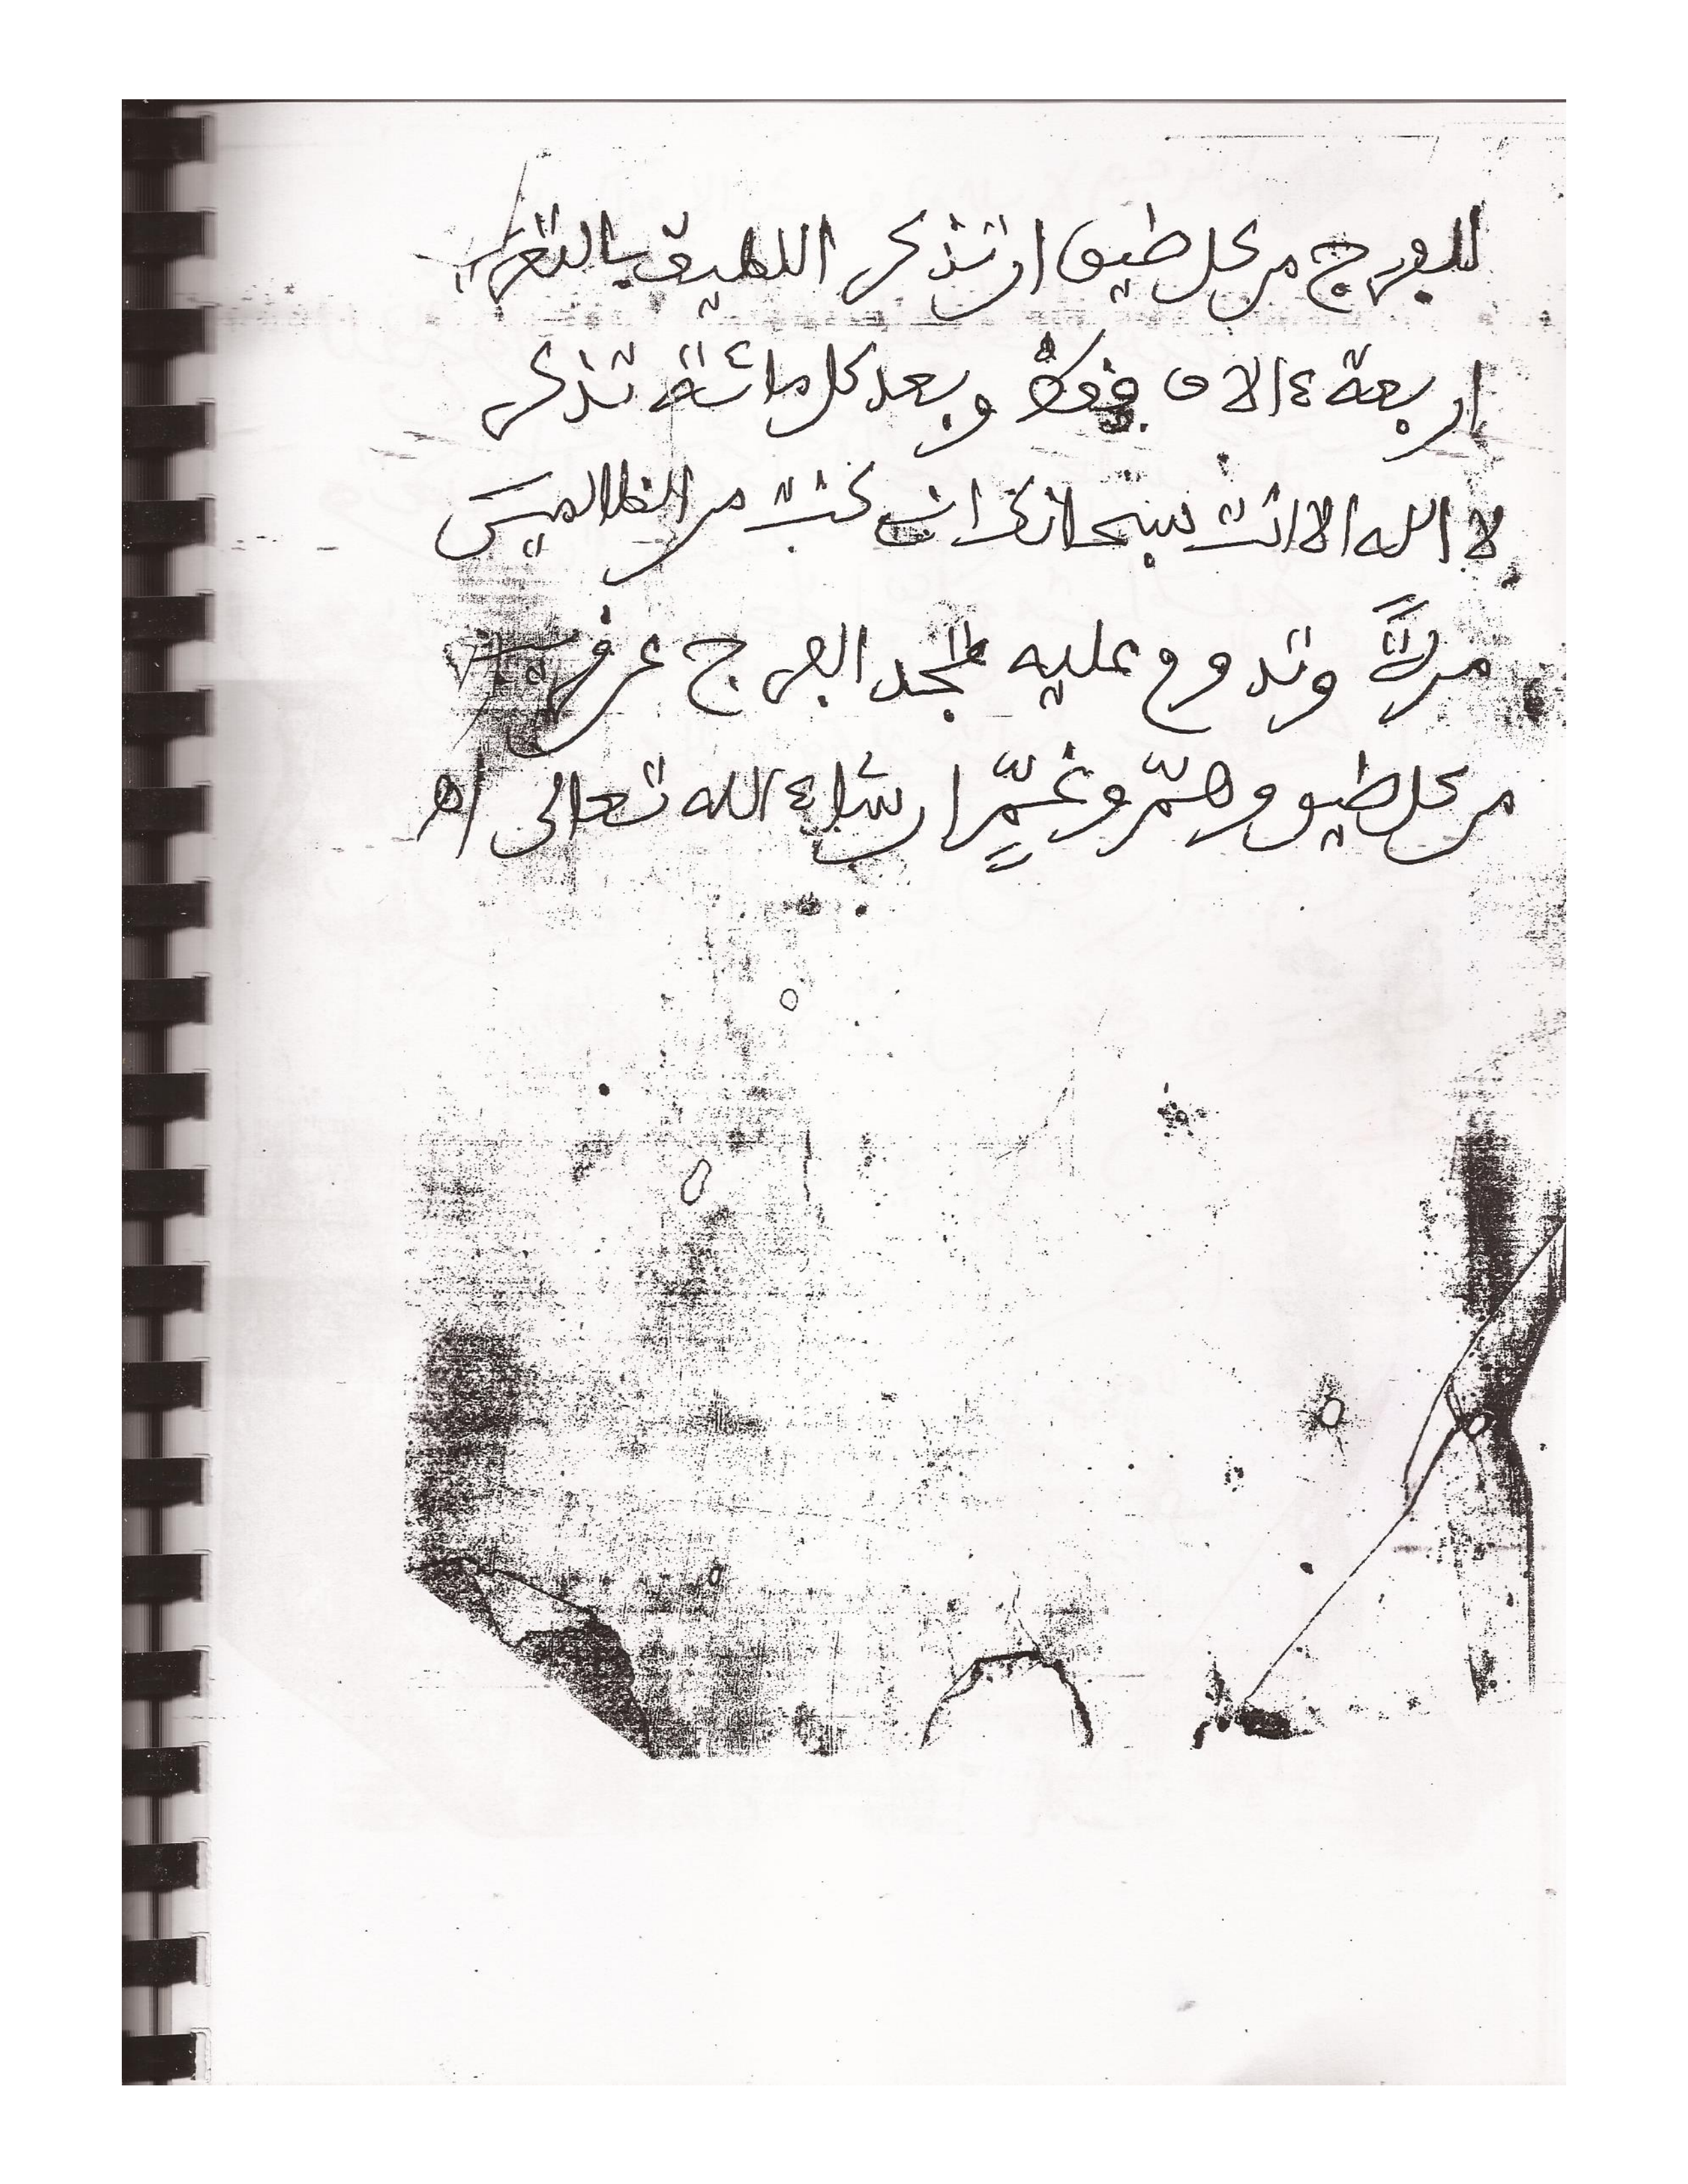 للفرج من كل ضيق ان تذكر اللطيف بالتعر
اربعة ءالاف فقط وبعد كل مائة تذكر
لا اله الا انت سبحانك انى كنت من الظالمين
مرة وتدوم عليه تجد الفرج عن قريب
من كل ضيق وهمّ وغمٍّ ان شاء الله تعالى اهـ